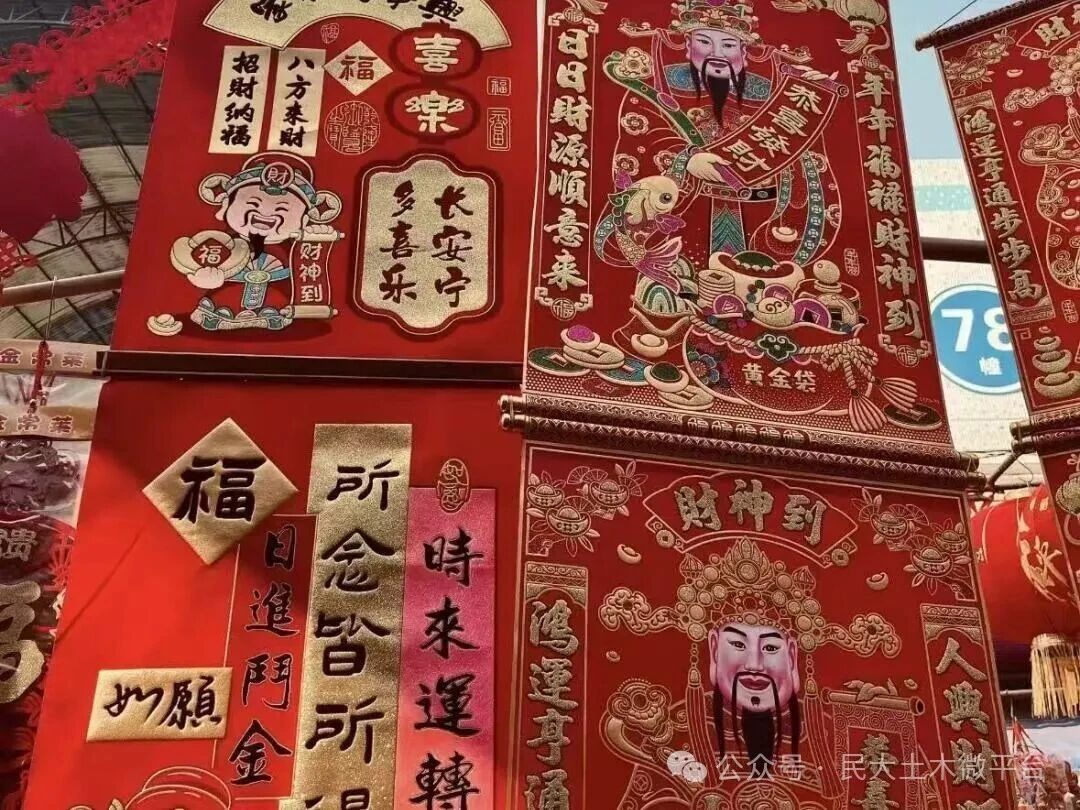 喜
樂
福
招財納福
八方来財
財
福
财神到
长安宁
多喜乐
恭喜發財
日日財源順意来
年年福禄財神到
黄金袋
鸿運亨通步步高
78
幢
福
日進鬥金
所念皆所
時來運轉
如願
財神到
鸿運亨通
人興財
公众号 · 民大土木微平台